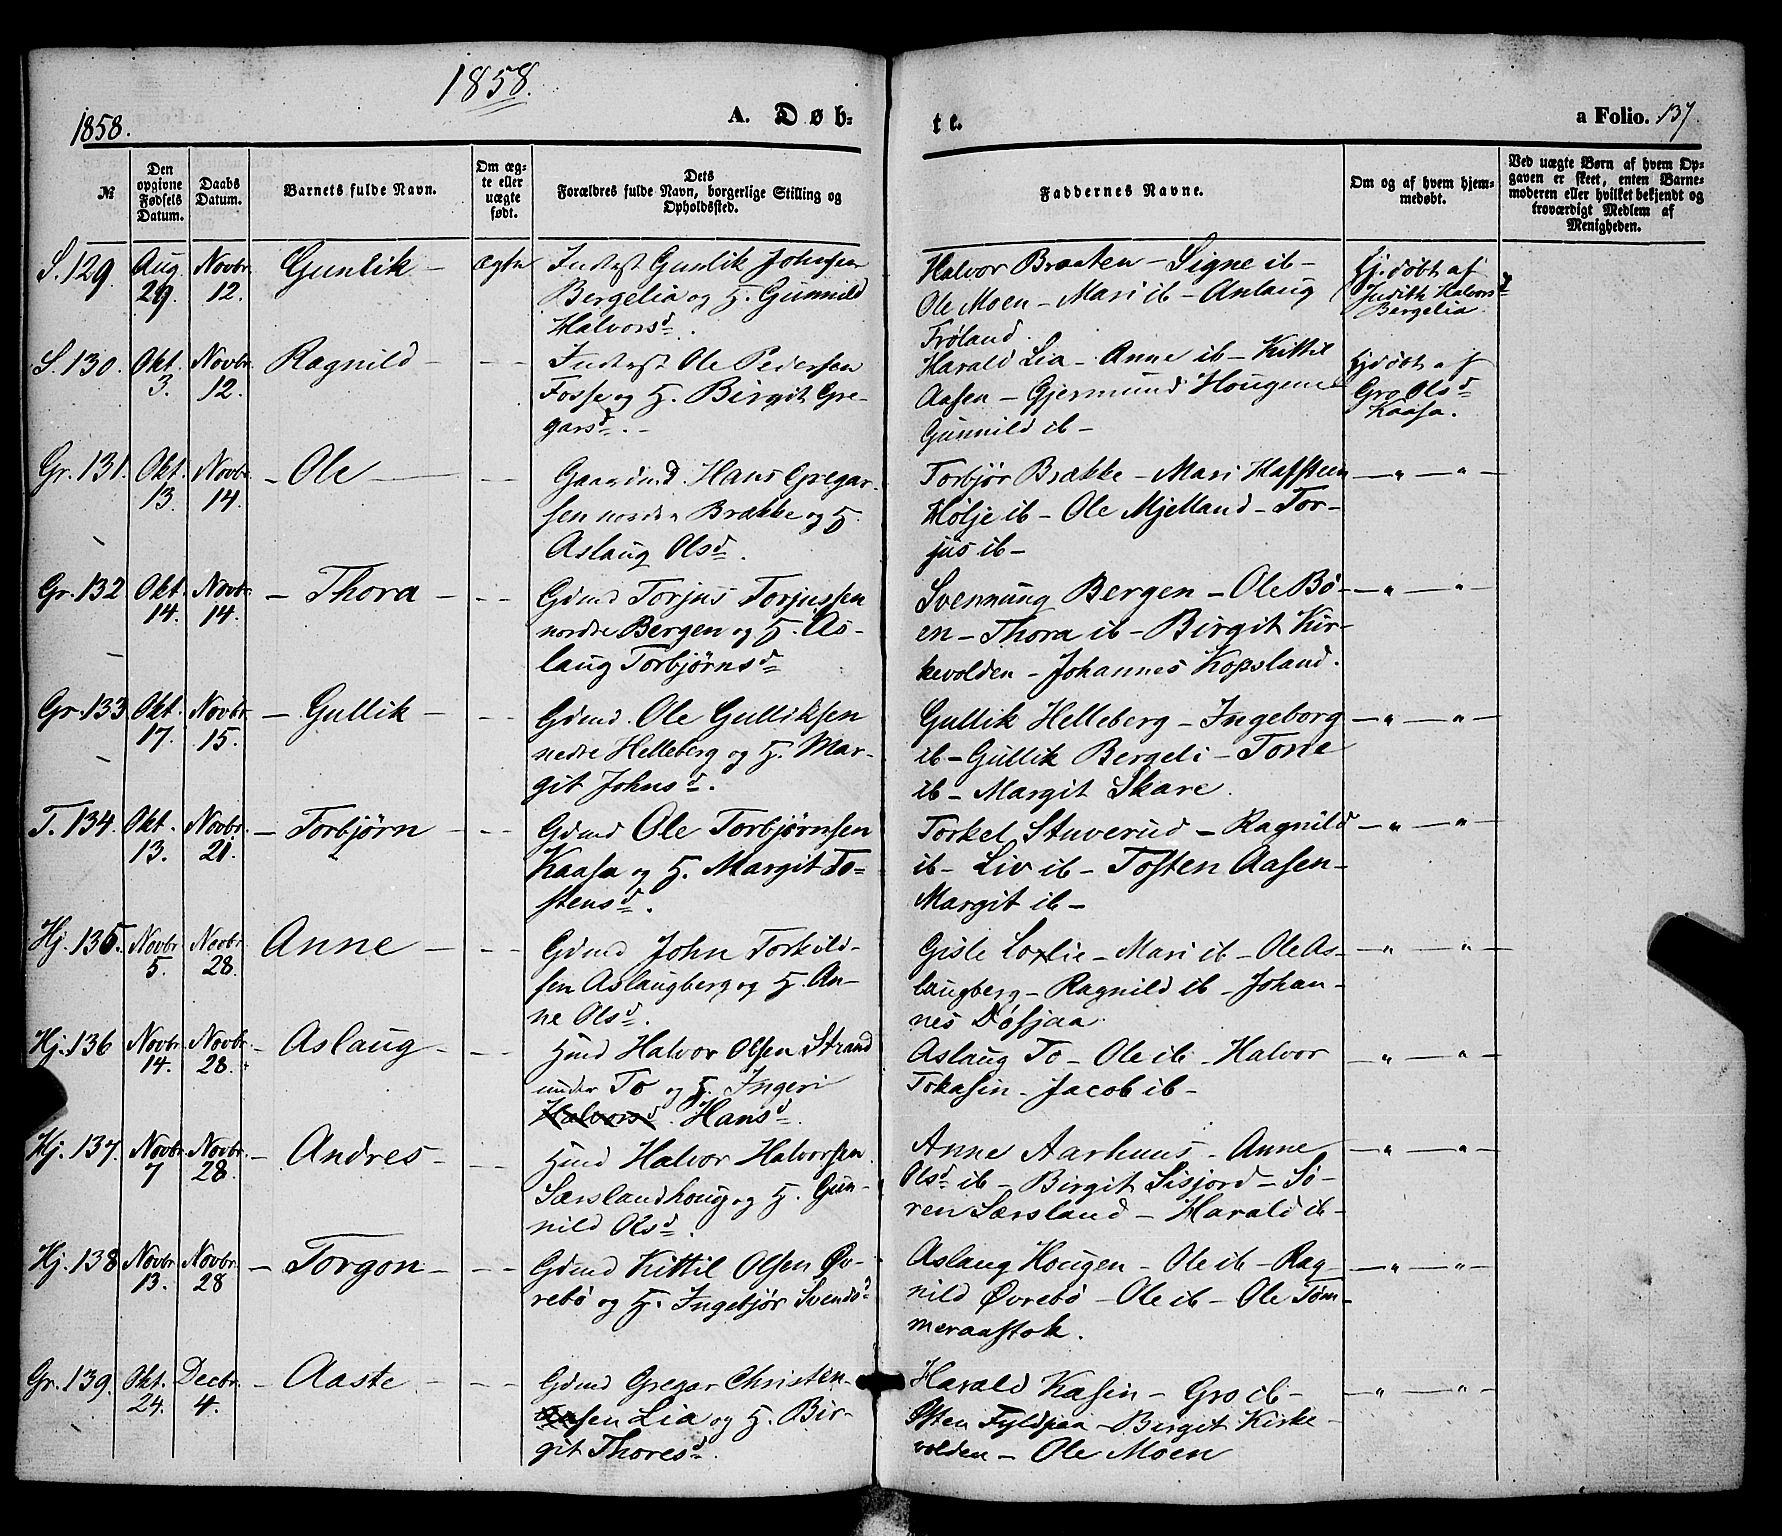 1858.
1858.
A. Døb-
te.
a Folio. 137.
№
Den opgivne Fødsels Datum.
Daabs Datum.
Barnets fulde Navn.
Om ægte eller uægte født.
Dets Forældres fulde Navn, borgerlige Stilling og Opholdssted.
Faddernes Navne.
Om og af hvem hjemmedøbt.
Ved uægte Børn af hvem Opgaven er skeet, enten Barnemoderen eller hvilket bekjendt og troværdigt Medlem af Menigheden.
S. 129. Aug. 29. Novbr. 12. Gunlik – ægte
Inderst Gunlik Johnsen
Bergelia og H. Gunnild
Halvorsd.
Halvor Braaten – Signe ib –
Ole Moen – Mari ib – Anlaug
Frøland.
Hj. døbt af
Judith Halvorsd
Bergelia.
S. 130. Okt. 3. Novbr. 12. Ragnild – – –
Inderst Ole Pedersen
Fosse og H. Birgit Gre-
garsd. –
Harald Lia – Anne ib – Kittil
Aasen – Gjermund Hougene
Gunnild ib –
Hjdøbt af
Gro Olsd
Kaasa.
Gr. 131. Okt. 13. Novbr. 14. – Ole – – –
Gaardmd. Hans Gregar-
sen nordre Brække og H.
Aslaug Olsd.
Torbjør Brække – Mari Haffsteen
Hølje ib – Ole Mjelland – Tor-
jus ib –
– " – " –
Gr. 132 Okt. 14. Novbr. 14. – Thora – – –
Gdmd Torjus Torjussen
nordre Bergen og H. As-
laug Torbjørnsd
Svennung Bergen – Ole Bø-
en – Thora ib – Birgit Kir-
kevolden – Johannes Kopsland.
– " – " –
Gr. 133 Okt. 17. Novbr. 15. – Gullik – – –
Gdmd. Ole Gulliksen
nedre Helleberg og H. Mar-
git Johnsd.
Gullik Helleberg – Ingeborg
ib – Gullik Bergeli – Tone
ib – Margit Skare.
– " – " –
T. 134. Okt. 13. Novbr. 21. – Torbjørn – – –
Gdmd Ole Torbjørnsen
Kaasa og H. Margit To-
stensd.
Torkel Stuverud – Ragnild
ib – Liv ib – Tosten Aasen –
Margit ib –
– " – " –
Hj. 135. Novbr. 5. Novbr. 28. Anne – – –
Gdmd John Torkild-
sen Aslaugberg og H. An-
ne Olsd.
Gisle Loxlie – Mari ib – Ole As-
laugberg – Ragnild ib – Johan-
nes Døfjaa.
– " – " –
Hj. 136 Novbr. 14. Novbr. 28. – Aslaug – – –
Hmd Halvor Olsen Strand
under To og H. Ingeri
Halvorsd. Hansd.
Aslaug To – Ole ib – Halvor
Tokasin – Jacob ib –
– " – " –
Hj. 137. Novbr. 7 Novbr. 28. – Andres – – –
Hmd Halvor Halvorsen
Særslandhoug og H. Gun-
nild Olsd.
Anne Aarhuus – Anne
Olsd ib – Birgit Sisjord – Sø-
ren Særsland – Harald ib –
– " – " –
Hj. 138 Novbr. 13. Novbr. 28 – Torgon – – –
Gdmd Kittil Olsen Øv-
rebø og H. Ingebjør Svendsd
Aslaug Hougen – Ole ib – Rag-
nild Øvrebø – Ole ib – Ole Tøm-
meraasstok.
– " – " –
Gr. 139. Okt. 24. Decbr. 4. – Aaste – – –
Gdmd Gregar Christen-
sen Lia og H. Bir-
git Thoresd.
Harald Kasin – Gro ib –
Østen Fyldpaa – Birgit Kirke-
volden – Ole Moen
– " – " –